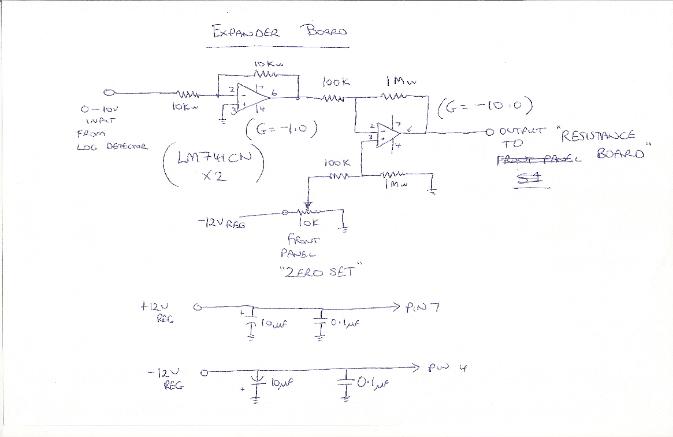 EXPANDER BOARD
10Kw
2
7
6
3
4
10Kw
0-10V
INPUT
FROM
LOG DETECTOR
(G=-1.0)
(LM741CN
X2)
100K
1Mw
(G=-10.0)
2
7
6
3
4
OUTPUT "RESISTANCE
TO BOARD"
FRONT PANEL
S1
100K
1Mw
-12V REG
10K
FRONT
PANEL
"ZERO SET"
+12V
REG
+
10µF
0.1µF
PIN 7
-12V
REG
+
10µF
0.1µF
PIN 4